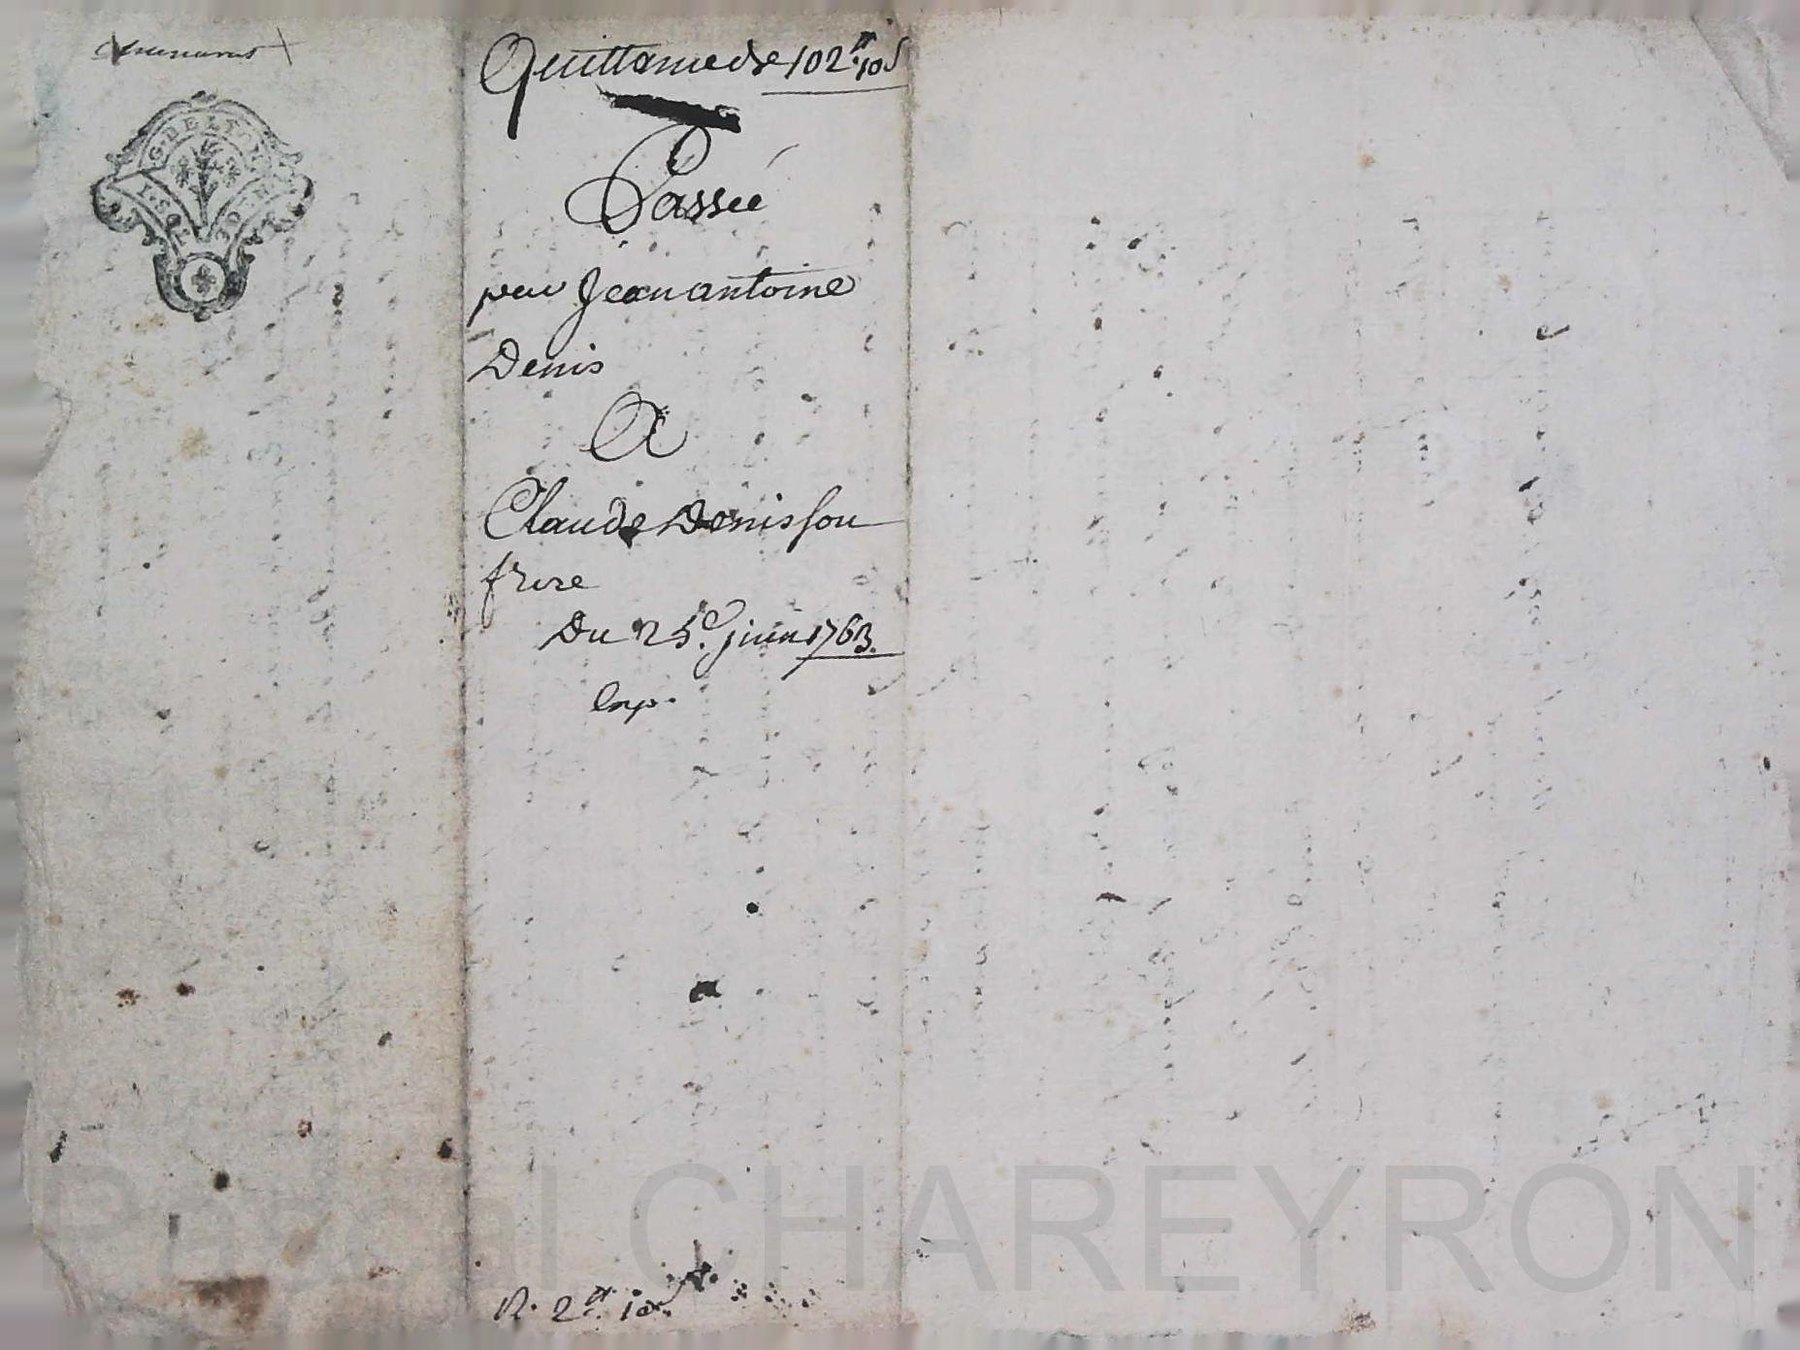 G. DE LYON
1. SOL
Quittance de 102ᵗᵗ 10ˢ
Passée
par Jean antoine
Denis
A
Claude Denis son
frere
Du 25ᵉ. juin 1763.
Exp.
R. 2ᵗᵗ 10ˢ
Pascal CHAREYRON